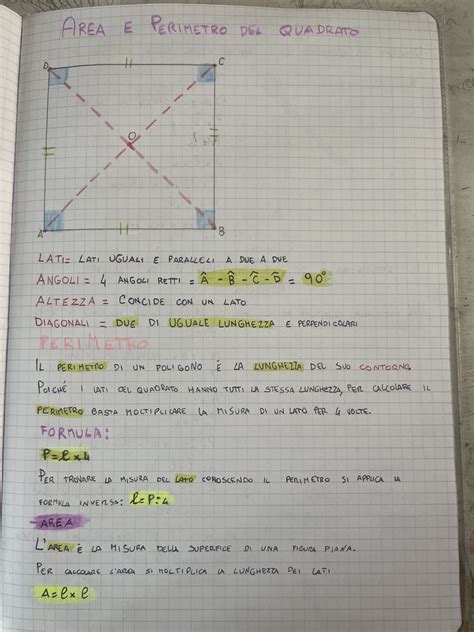 AREA E PERIMETRO DEL QUADRATO
D
C
O
A
B
LATI= LATI UGUALI E PARALLELI A DUE A DUE
ANGOLI = 4 ANGOLI RETTI = Â - B̂ - Ĉ - D̂ = 90°
ALTEZZA = COINCIDE CON UN LATO
DIAGONALI = DUE DI UGUALE LUNGHEZZA E PERPENDICOLARI
PERIMETRO
IL PERIMETRO DI UN POLIGONO È LA LUNGHEZZA DEL SUO CONTORNO.
POICHÉ I LATI DEL QUADRATO HANNO TUTTI LA STESSA LUNGHEZZA, PER CALCOLARE IL
PERIMETRO BASTA MOLTIPLICARE LA MISURA DI UN LATO PER 4 VOLTE.
FORMULA:
P=l×4
PER TROVARE LA MISURA DEL LATO CONOSCENDO IL PERIMETRO SI APPLICA LA
FORMULA INVERSA: l=P:4
AREA
L'AREA È LA MISURA DELLA SUPERFICE DI UNA FIGURA PIANA.
PER CALCOLARE L'AREA SI MOLTIPLICA LA LUNGHEZZA DEI LATI
A=l×l